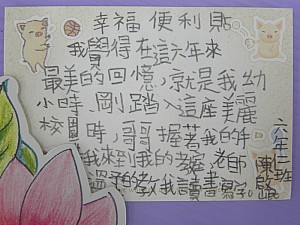 幸福便利貼
我覺得在這六年來
最美的回憶,就是我幼
小時、剛踏入這座美麗
校園時,哥哥握著我的手
我來到我的教室,老師
溫柔的教我讀書寫字。
六年二班
陳